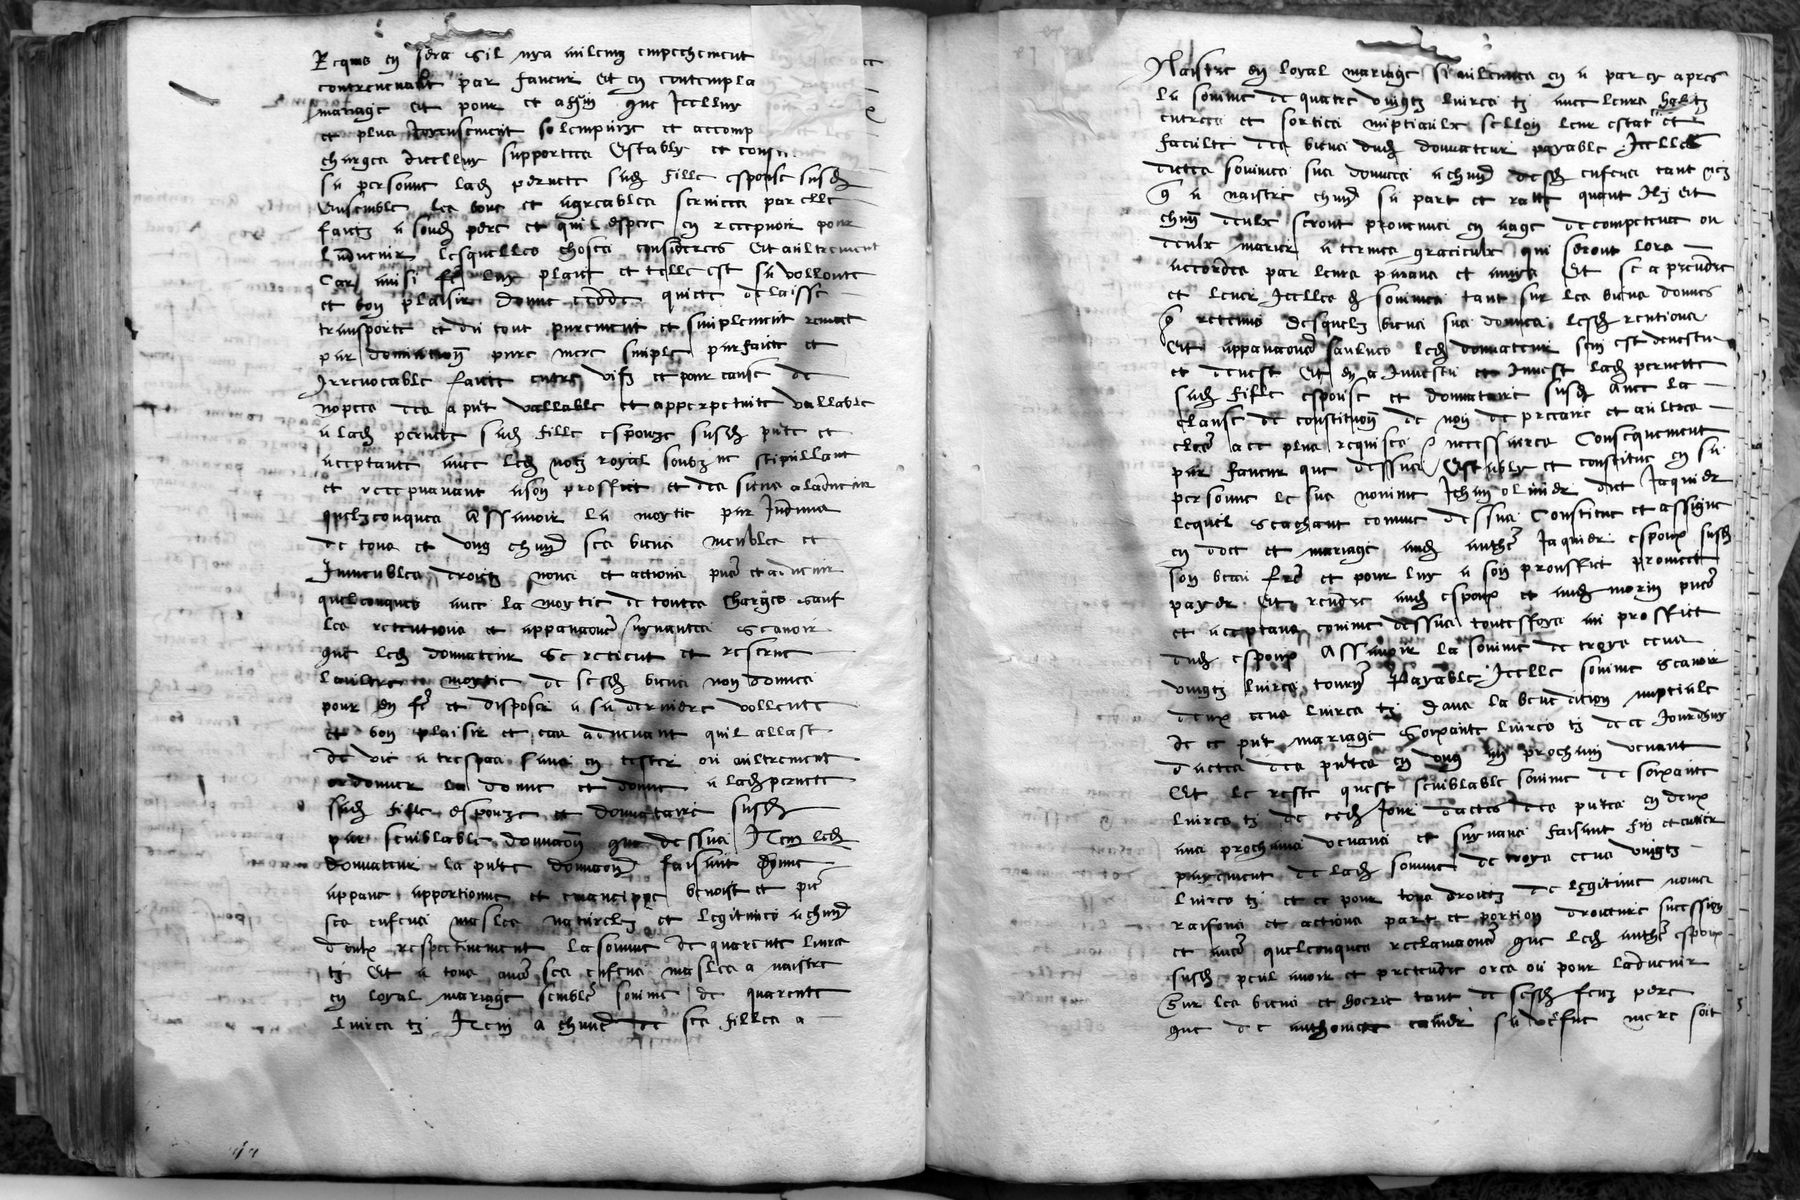 Requis en sera sil nya aulcung empechement
contrevenant par faveur et en contempla
mariage et pour et affin que icelluy
et plus joyeusement solempnize et accomp
charges dicelluy supportees Estably et cons
sa personne lad pernete sad fille espouse susd
Ensemble les bons et agreables services par elle
faictz a sond pere et quil espere en recepvoir pour
ladvenir lesquelles choses considerees Et aultrement
Car ainsi luy plaict et telle est sa vollonte
et bon plaisir donne cedde quicte delaisse
transporte et du tout purement et simplement remect
par donnation pure mere simple parfaicte et
Irrevocable faicte entre vifz et pour cause de
nopces des a put vallable et apperpetuite vallable
a lad pernete sad fille espouze susd pute et
acceptante avec led notz royal soubz ne stipullant
et recepvant a son proffict et des siens a ladvenir
quelzconques Assavoir la moytie par Indivis
de tous et ung chund ses biens meubles et
Immeubles droictz noms et actions pns et advenir
quelconques avec la moytie de toutes charges sauf
les retentions et appanaons suyvantes scavoir
que led donnateur se retient et reserve
laultre moytie de sesd biens non donnes
pour en fe et disposer a sa derniere vollente
et bon plaisir et cas advenant quil allast
de vie a trespas sans en tester ou aultrement
ordonner la donne et donne a lad pernete
sad fille espouze et donnataire susd
par semblable donnaon que dessus Item led
donnateur la pute donnaon faisant donne
appane apportionne et emancippe benoist et pre
ses enfens masles naturelz et legitimes a chund
deulx respectivement la somme de quarente livres
tz Et a tous aues ses enfens masles a naistre
en loyal mariage semble somme de quarente
livres tz Item a chune de ses filles a
Naistre en loyal mariage si aulcunes en a par cy apres
la somme de quatre vingtz livres tz avec leurs habitz
entrees et sorties nuptiaulx sellon leur estat et
faculte des biens dud donnateur payable Icelles
dictes sommes sus donnees a chund desd enfens tant
que a naistre chund sa part et rate quant Ilz et
chun deulx seront provenus en aage de competence ou
deulx marier a termes gracieulx qui seront lors
accordes par leurs parans et amys Et se a prendre
et lever Icelles d sommes tant sur les biens donnes
que retenus desquelz biens sus donnes lesd rentions
Et appanaons saulves led donnateur sen est devestu
et devest Et en a Investu et Invest lad pernete
sad fille espouse et donnataire susd avec la
clause de constitution de non de precaire et aultres
cles a ce plus requises et necessaires Consequemment
par faveur que dessus Estably et constitue en sa
personne le sus nomme Jehan olinier dict Jaquier
lequel scachant comme dessus Constitue et assigne
en dot et mariage aud anthe Jaquier espoux susd
son beau fre et pour luy a son prouffict promect
payer Et rendre aud espoux et aud morin pnt
et acceptans comme dessus touteffoys au proffict
dud espoux Assavoir la somme de troys cens
vingtz livres tourn Payable Icelle somme scavoir
deux cens livres tz dans la benediction nuptiale
de ce put mariage Soixante livres tz de ce Jourdhuy
dactes des putes en ung an prochain venant
Et le reste quest semblable somme de soixante
livres tz de ced Jour dactes des putes en deux
ans prochains venans et suyvans faisant fin et entier
payement de lad somme de troys cens vingtz
livres tz et ce pour tous droictz de legitime noms
raisons et actions part et portion droicture succession
et aues quelconques reclamaons que led anthe espoux
susd peult avoir et pretendre ores ou pour ladvenir
Sur les biens et hoerie tant de sesd feuz pere
que de anthoinete sa vefve mere soit